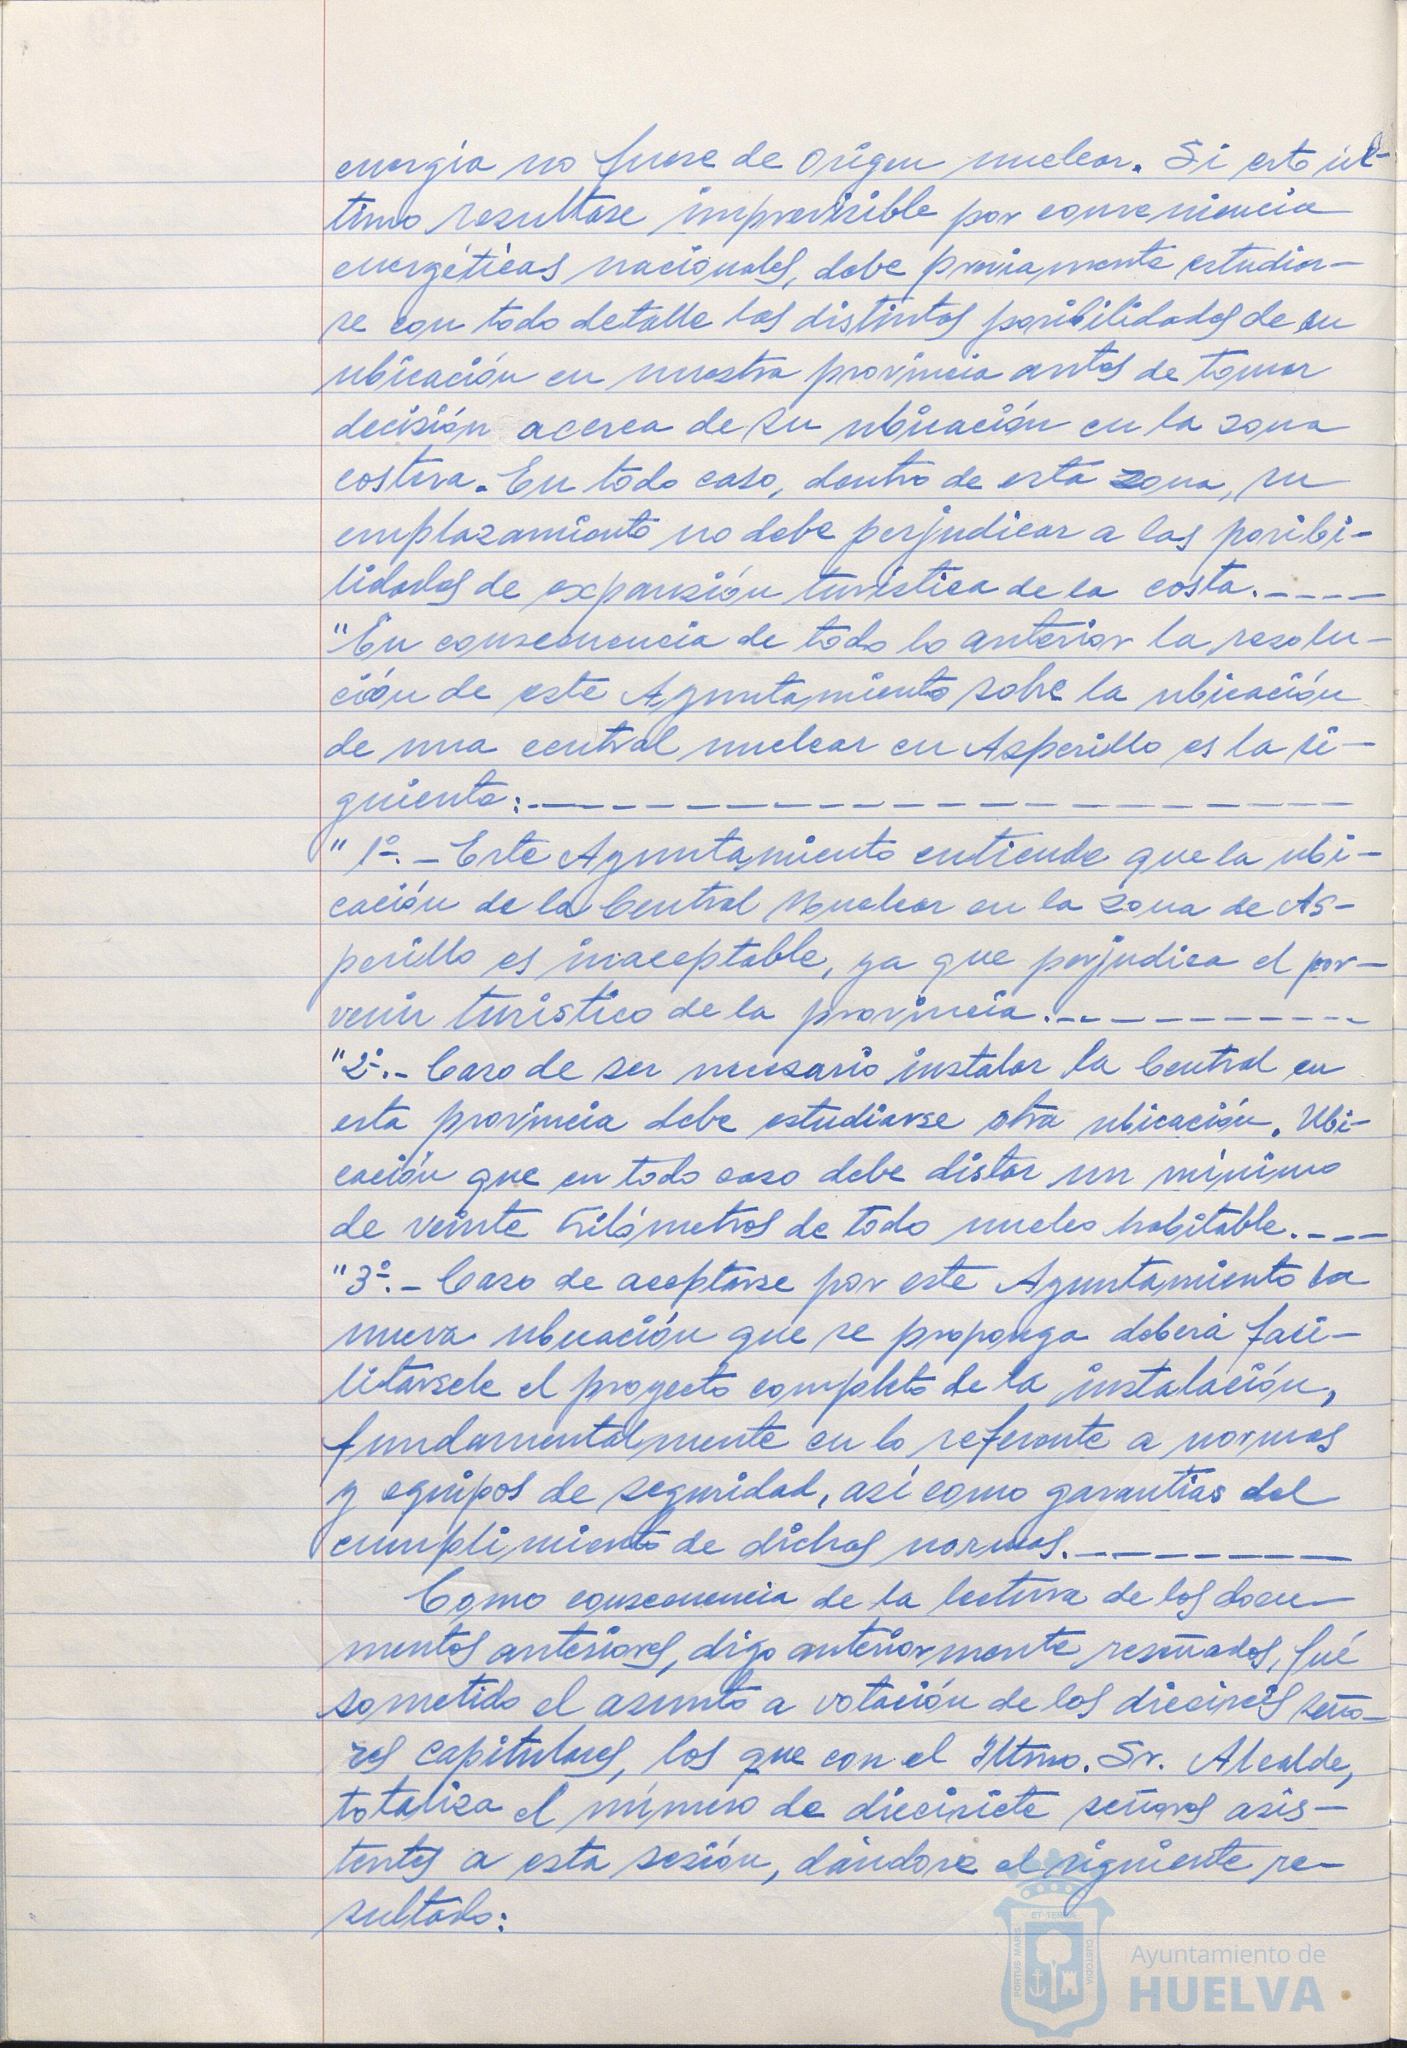 energía no fuese de origen nuclear. Si esto úl-
timo resultase imprevisible por conveniencia
energéticas nacionales, debe previamente estudiar-
se con todo detalle las distintas posibilidades de su
ubicación en nuestra provincia antes de tomar
decisión acerca de su ubicación en la zona
costera. En todo caso, dentro de esta zona, su
emplazamiento no debe perjudicar a las posibi-
lidades de expansión turística de la costa.----
"En consecuencia de todo lo anterior la resolu-
ción de este Ayuntamiento sobre la ubicación
de una central nuclear en Asperillo es la si-
guiente:---------------
"1º.- Este Ayuntamiento entiende que la ubi-
cación de la Central Nuclear en la zona de As-
perillo es inaceptable, ya que perjudica el por-
venir turístico de la provincia.----------
"2º.- Caso de ser necesario instalar la Central en
esta provincia debe estudiarse otra ubicación. Ubi-
cación que en todo caso debe distar un mínimo
de veinte kilómetros de todo nucleo habitable.----
"3º.- Caso de aceptarse por este Ayuntamiento la
nueva ubicación que se proponga deberá faci-
litársele el proyecto completo de la instalación,
fundamentalmente en lo referente a normas
y equipos de seguridad, así como garantías del
cumplimiento de dichas normas.--------
Como consecuencia de la lectura de los docu-
mentos anteriores, digo anteriormente reseñados, fué
sometido el asunto a votación de los dieciseis seño-
res capitulares, los que con el Iltmo. Sr. Alcalde,
totaliza el número de diecisiete señores asis-
tentes a esta sesión, dándose el siguiente re-
sultado:
PORTUS MARIS
ET TERRAE
CUSTODIA
Ayuntamiento de
HUELVA